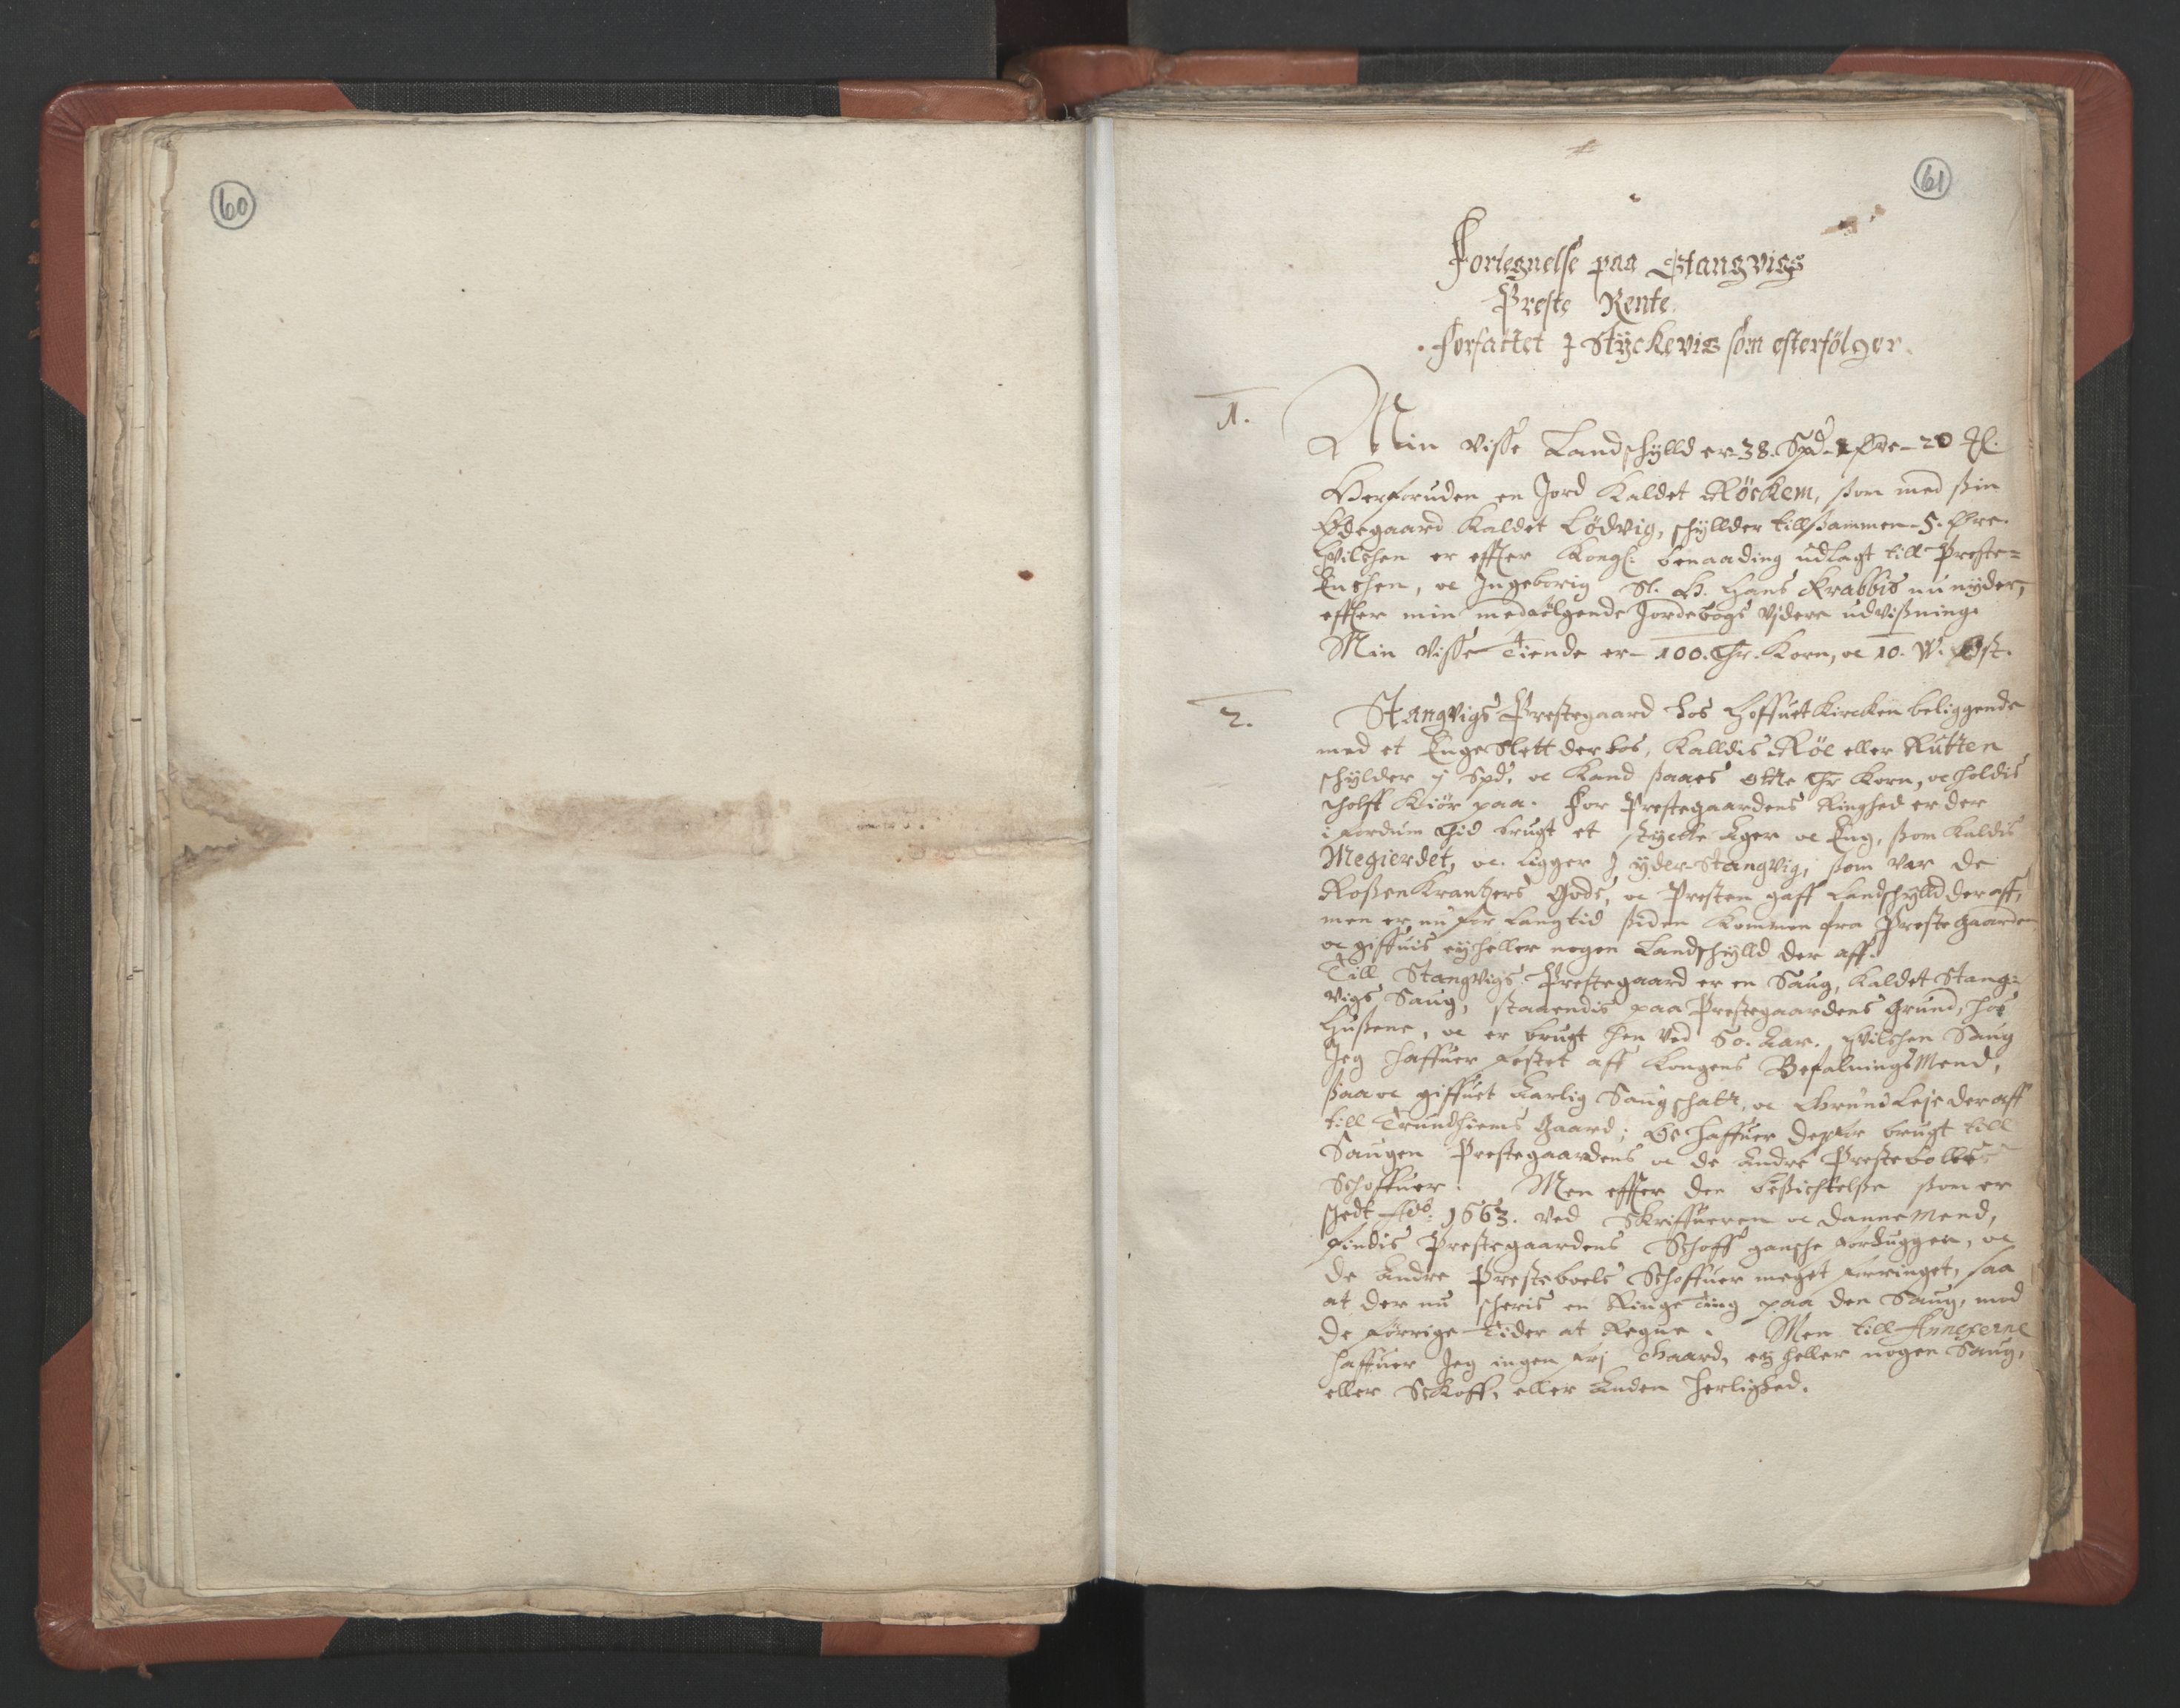 60
61
Fortegnelse paa Stangvigs
Preste Rente.
Forfattet I Styckevis som efterfölger.
1.
Min visse Landschylld er 38. Spd - 1 Øre - 20
Herforuden en Jord kaldet Röckem, som med sin
Ødegaard kaldet Lödvig, schyllder tillsammen - 5. Øre.
Hvilchen er effter Kongl: benaading udlagt till Preste-
Enchen, oc Ingeborrig Sl. H. Hans Krabbis nu nyder,
effter min medfölgende Jordebogs Vjdere udvissning.
Min Visse Tiende er - 100. Thr. Korn, oc 10. W. Ost.
2.
Stangvigs Prestegaard hos Hoffuet Kircken beliggende
med et Enge Slett der hos, kalldis Röe eller Rutten
schylder j Spd, oc Kand saaes otte Thr Korn, oc holdis
tholff Kiör paa. For Prestegaardens Ringhed er der
i fordum thid brugt et stycke Ager oc Eng, som kaldis
Megierdet, oc ligger I yder-Stangvig, som var de
Rossenkrantzers Gods, oc Presten gaff Landschylld der aff,
men er nu for lang tid siden kommen fra Prestegaarden
oc giffuis ej heller nogen Landschylld der aff.
Till Stangvigs Prestegaard er en Saug, kaldet Stang-
vigs Saug, staaendis paa Prestegaardens Grund, hos
Hussene, oc er brugt hen ved 50. Aar. Hvilchen Saug
Jeg haffuer festet aff Kongens Befalnings Mend,
saa oc giffuet Aarlig Saugschatt, oc Grund Leje der aff
till Trundhiems Gaard; Oc haffuer derfor brugt till
Saugen Prestegaardens oc de andre Prestebolles
Schoffuer. Men effter den besichtelse som er
scheedt Ao: 1663. ved Skriffueren oc Dannemend,
findis Prestegaardens Schoff gansche forhuggen, oc
de andre Presteboels Schoffuer meget forringet, saa
at der nu scheris en Ringe ting paa den Saug, mod
de förrige Tider at Regne. Men till Annexerne
haffuer Jeg ingen frj Gaard, ej heller nogen Saug,
eller Schoff, eller anden herlighed.